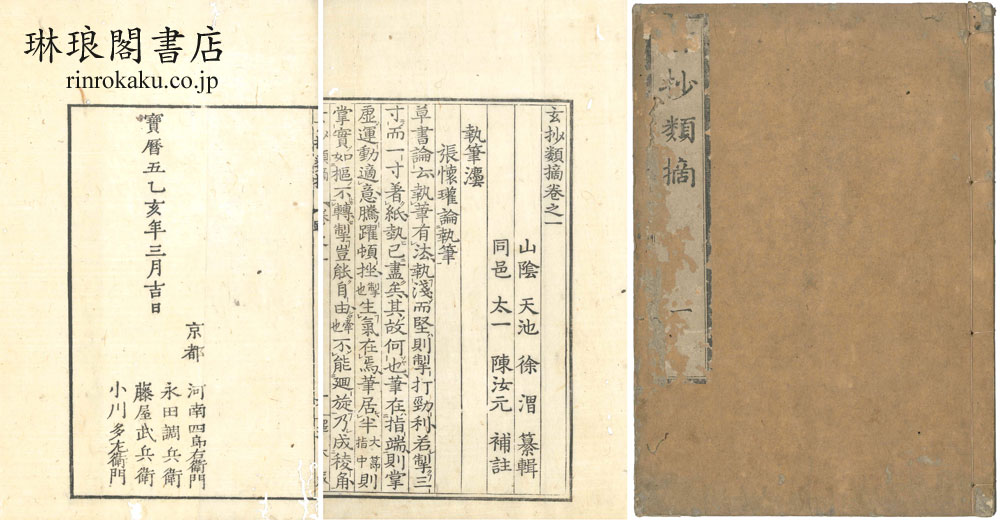 琳琅閣書店
rinrokaku.co.jp
寶曆五乙亥年三月吉日
京都
河南四郎右衛門
永田調兵衛
藤屋武兵衛
小川多左衛門
玄抄類摘卷之一
山陰 天池 徐渭 纂輯
同邑 太一 陳汝元 補註
執筆灋
張懷瓘論執筆
草書論云執筆有法執淺而堅則掣打勁利若掣三
寸而一寸著紙執已盡矣其故何也筆在指端則掌
虛運動適意騰躍頓挫掣也生氣在焉筆居半大篇指中則
掌實如樞不轉掣豈能自由也不能廻旋乃成稜角
抄類摘
一